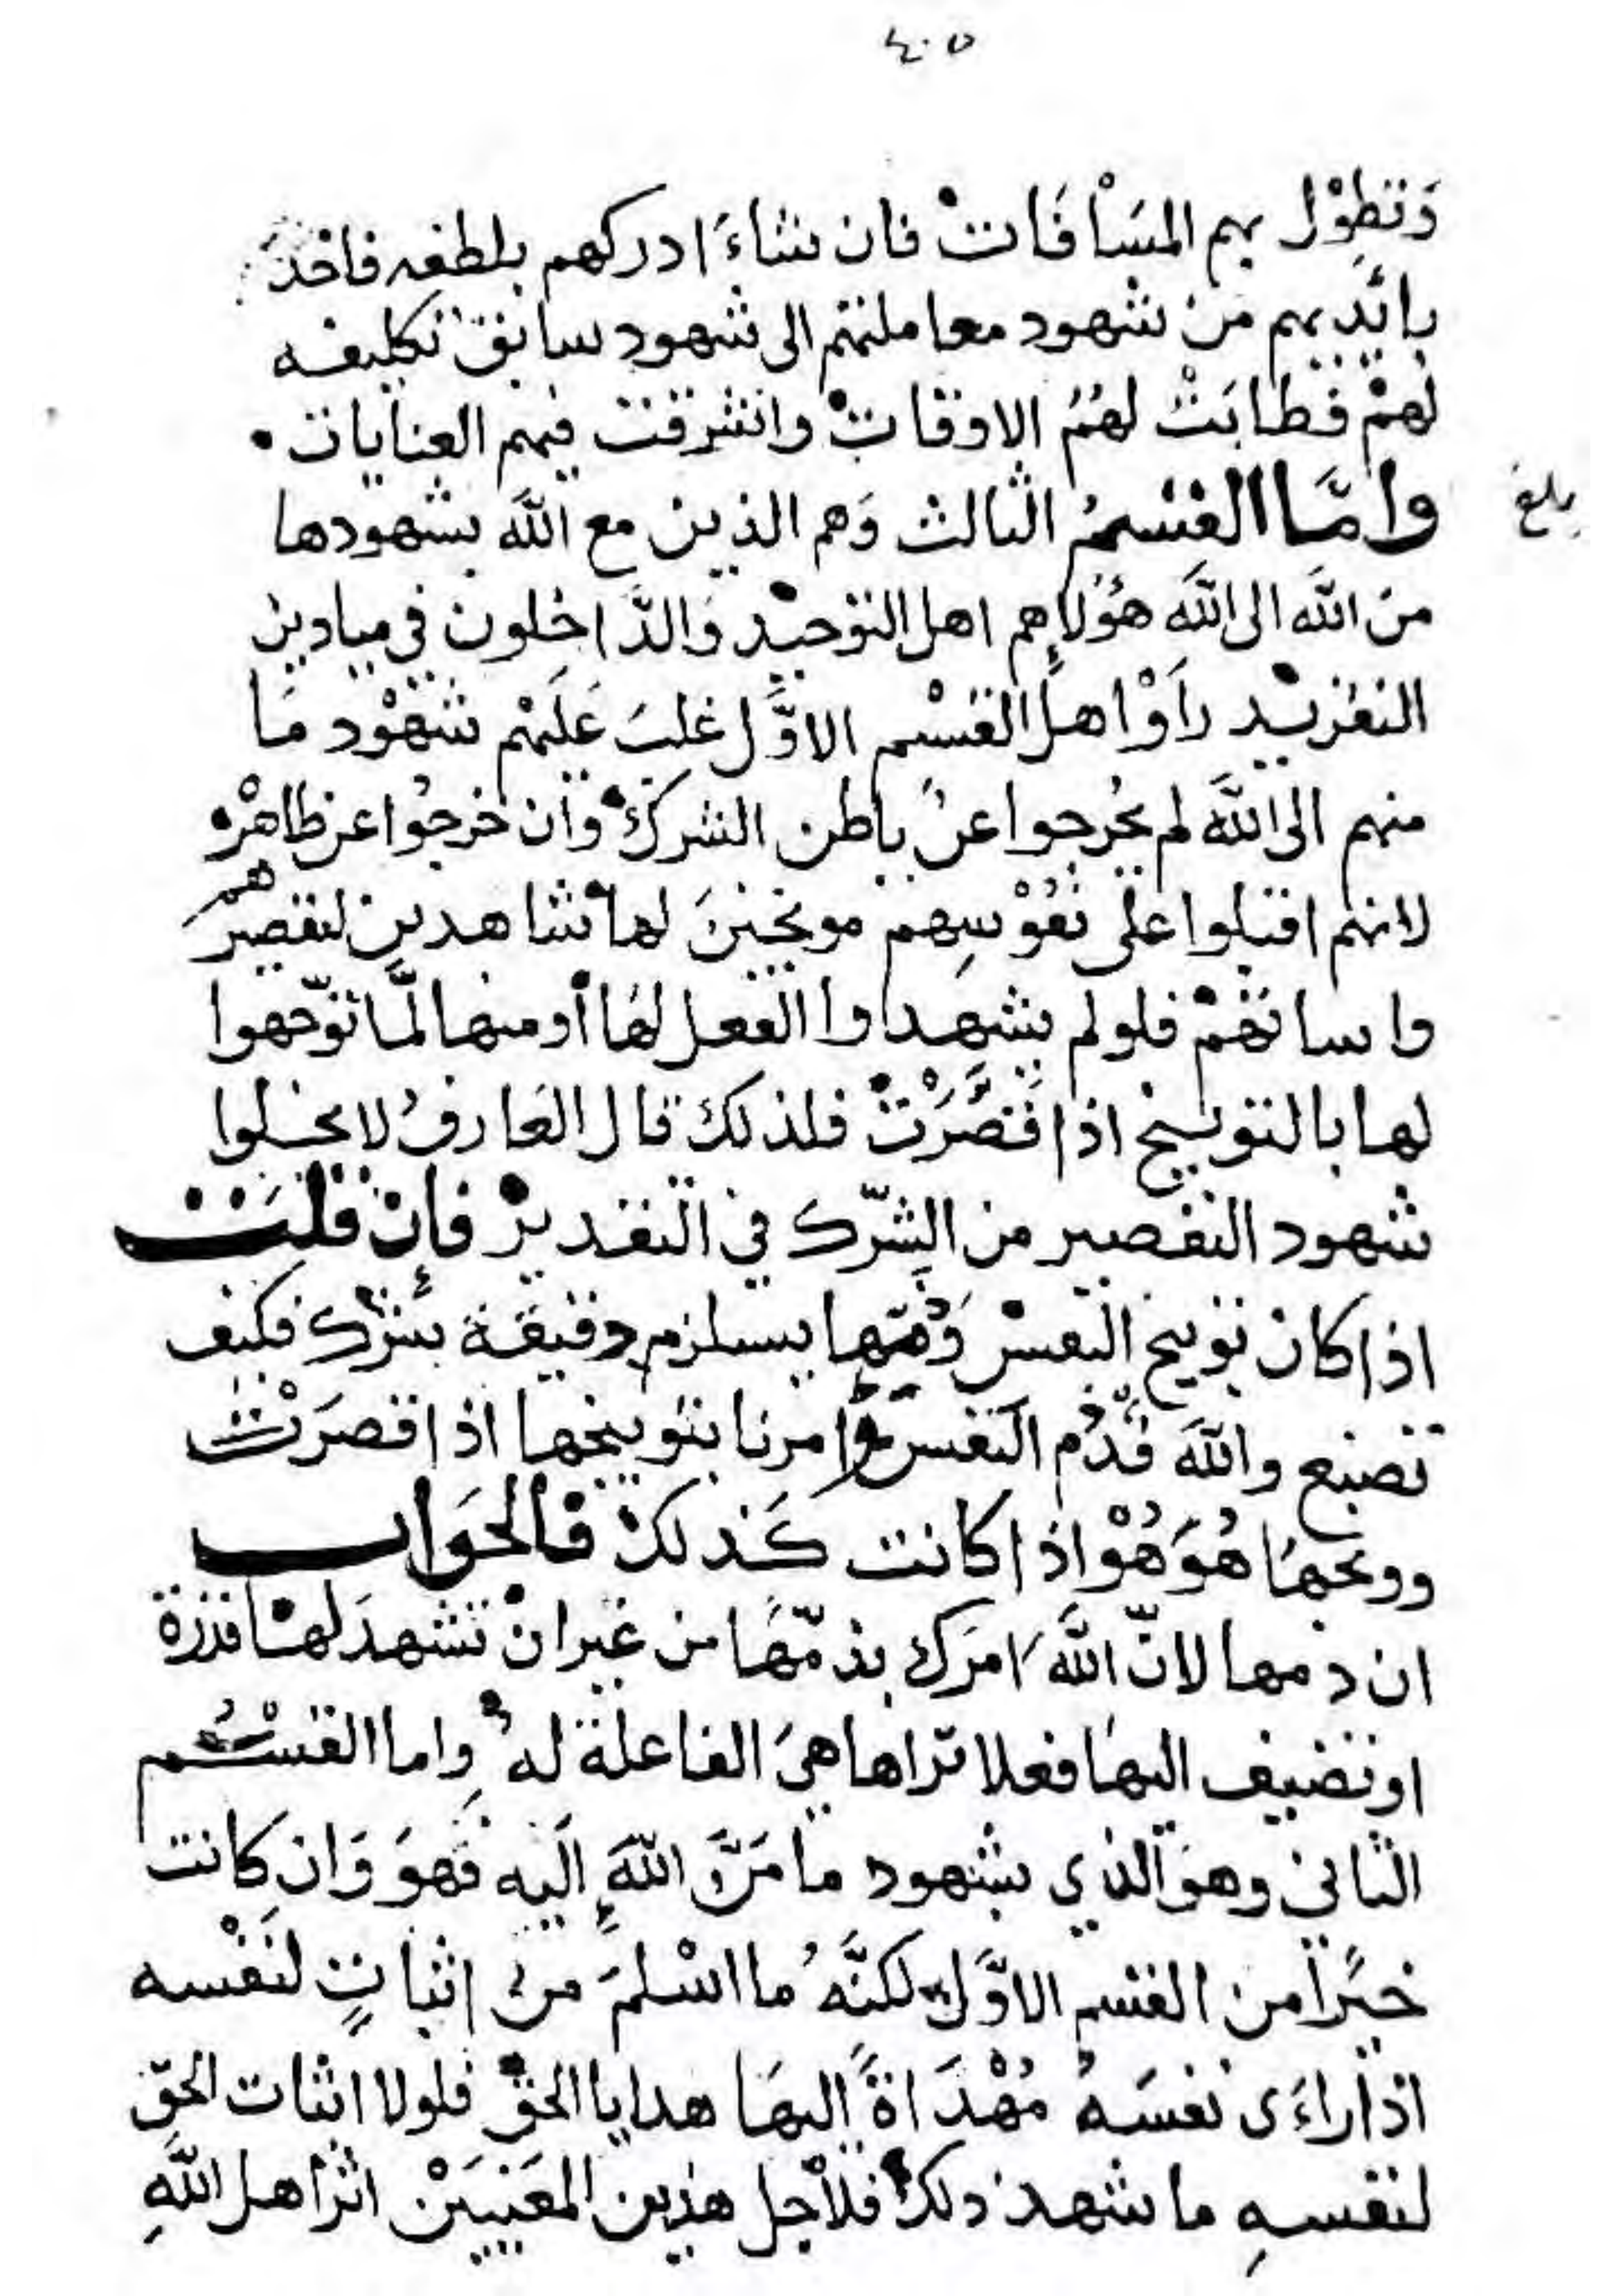 ٤٠٥
وَتطوْل بهم المسَافَاتْ فان شاءَ ادركهم بلطفه فاخذَ
بايديهم من شهود معاملتهم الى شهود سابق تكليفه
لهمْ فطابَتْ لهُمُ الاوقاتْ واشرقت فيهم العنايات
بلغ
وامَّا القسْمُ الثالث وَهم الذين مع الله بشهودها
من الله الى الله هؤلاء هم اهل التوحيْد وَالدَّاخلون في ميادين
التفريْد رأَوْا اهل القسْم الاوَّل غلبَ عَليْهم شهوْد مَا
منهم الى الله لم يخُرجوا عن باطن الشرك وان خرجُوا عن ظاهرْه
لانهم اقبلوا على نفوْسِهم موبخينَ لها شاهدين لتقصيرْهم
واساتهمْ فلولم يشهداوا الفعل لهَا أو منها لمَّا توّجهوا
لها بالتوبيخ اذا قصَّرَتْ فلذلك قال العَارفُ لا يخلوا
شهود التقصير من الشّرك في التقديرْ فإن قلت
اذا كان توبيخ النفسْ وَذمّها يسلزم دقيقة شرك فكيف
تصنع والله قدْ ذم النفس وامرنا بتوبيخها اذا قصرَتْ
ووبخهَا هُوَ هُوْ اذا كانت كَذلك فالجَواب
ان ذمها لانّ الله امَرَك بذمّهَا من غير ان تشهدَ لها قدرة
او تضيف اليهَا فعلا تراها هيَ الفاعلة له واما القسْم
الثاني وهوَ الذي بشهود ما مَنَّ اللهُ اليه فهوَ وَان كانت
خيرًا من القسم الاوَّل لكنَّهُ ما اسْلمَ من اثباتٍ لنَفْسه
اذا راءَى نفسَهُ مُهْدَاةً اليهَا هدايا الحقْ فلولا اثبات الحقّ
لنفسهِ ما شهد ذلك فلأجل هذين المعَنيَيْن اثر اهل اللهِ